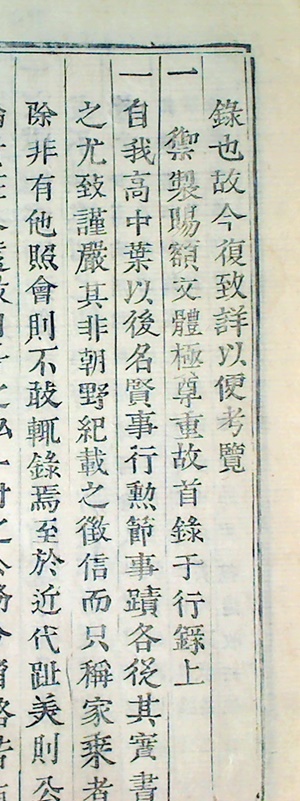 錄也故今復致詳以便考覽
一 御製賜額文體極尊重故首錄于行錄上
一自我高中葉以後名賢事行勲節事蹟各從其實書
之尤致謹嚴其非朝野紀載之徵信而只稱家乗者
除非有他照會則不敢輒錄焉至於近代趾美則公